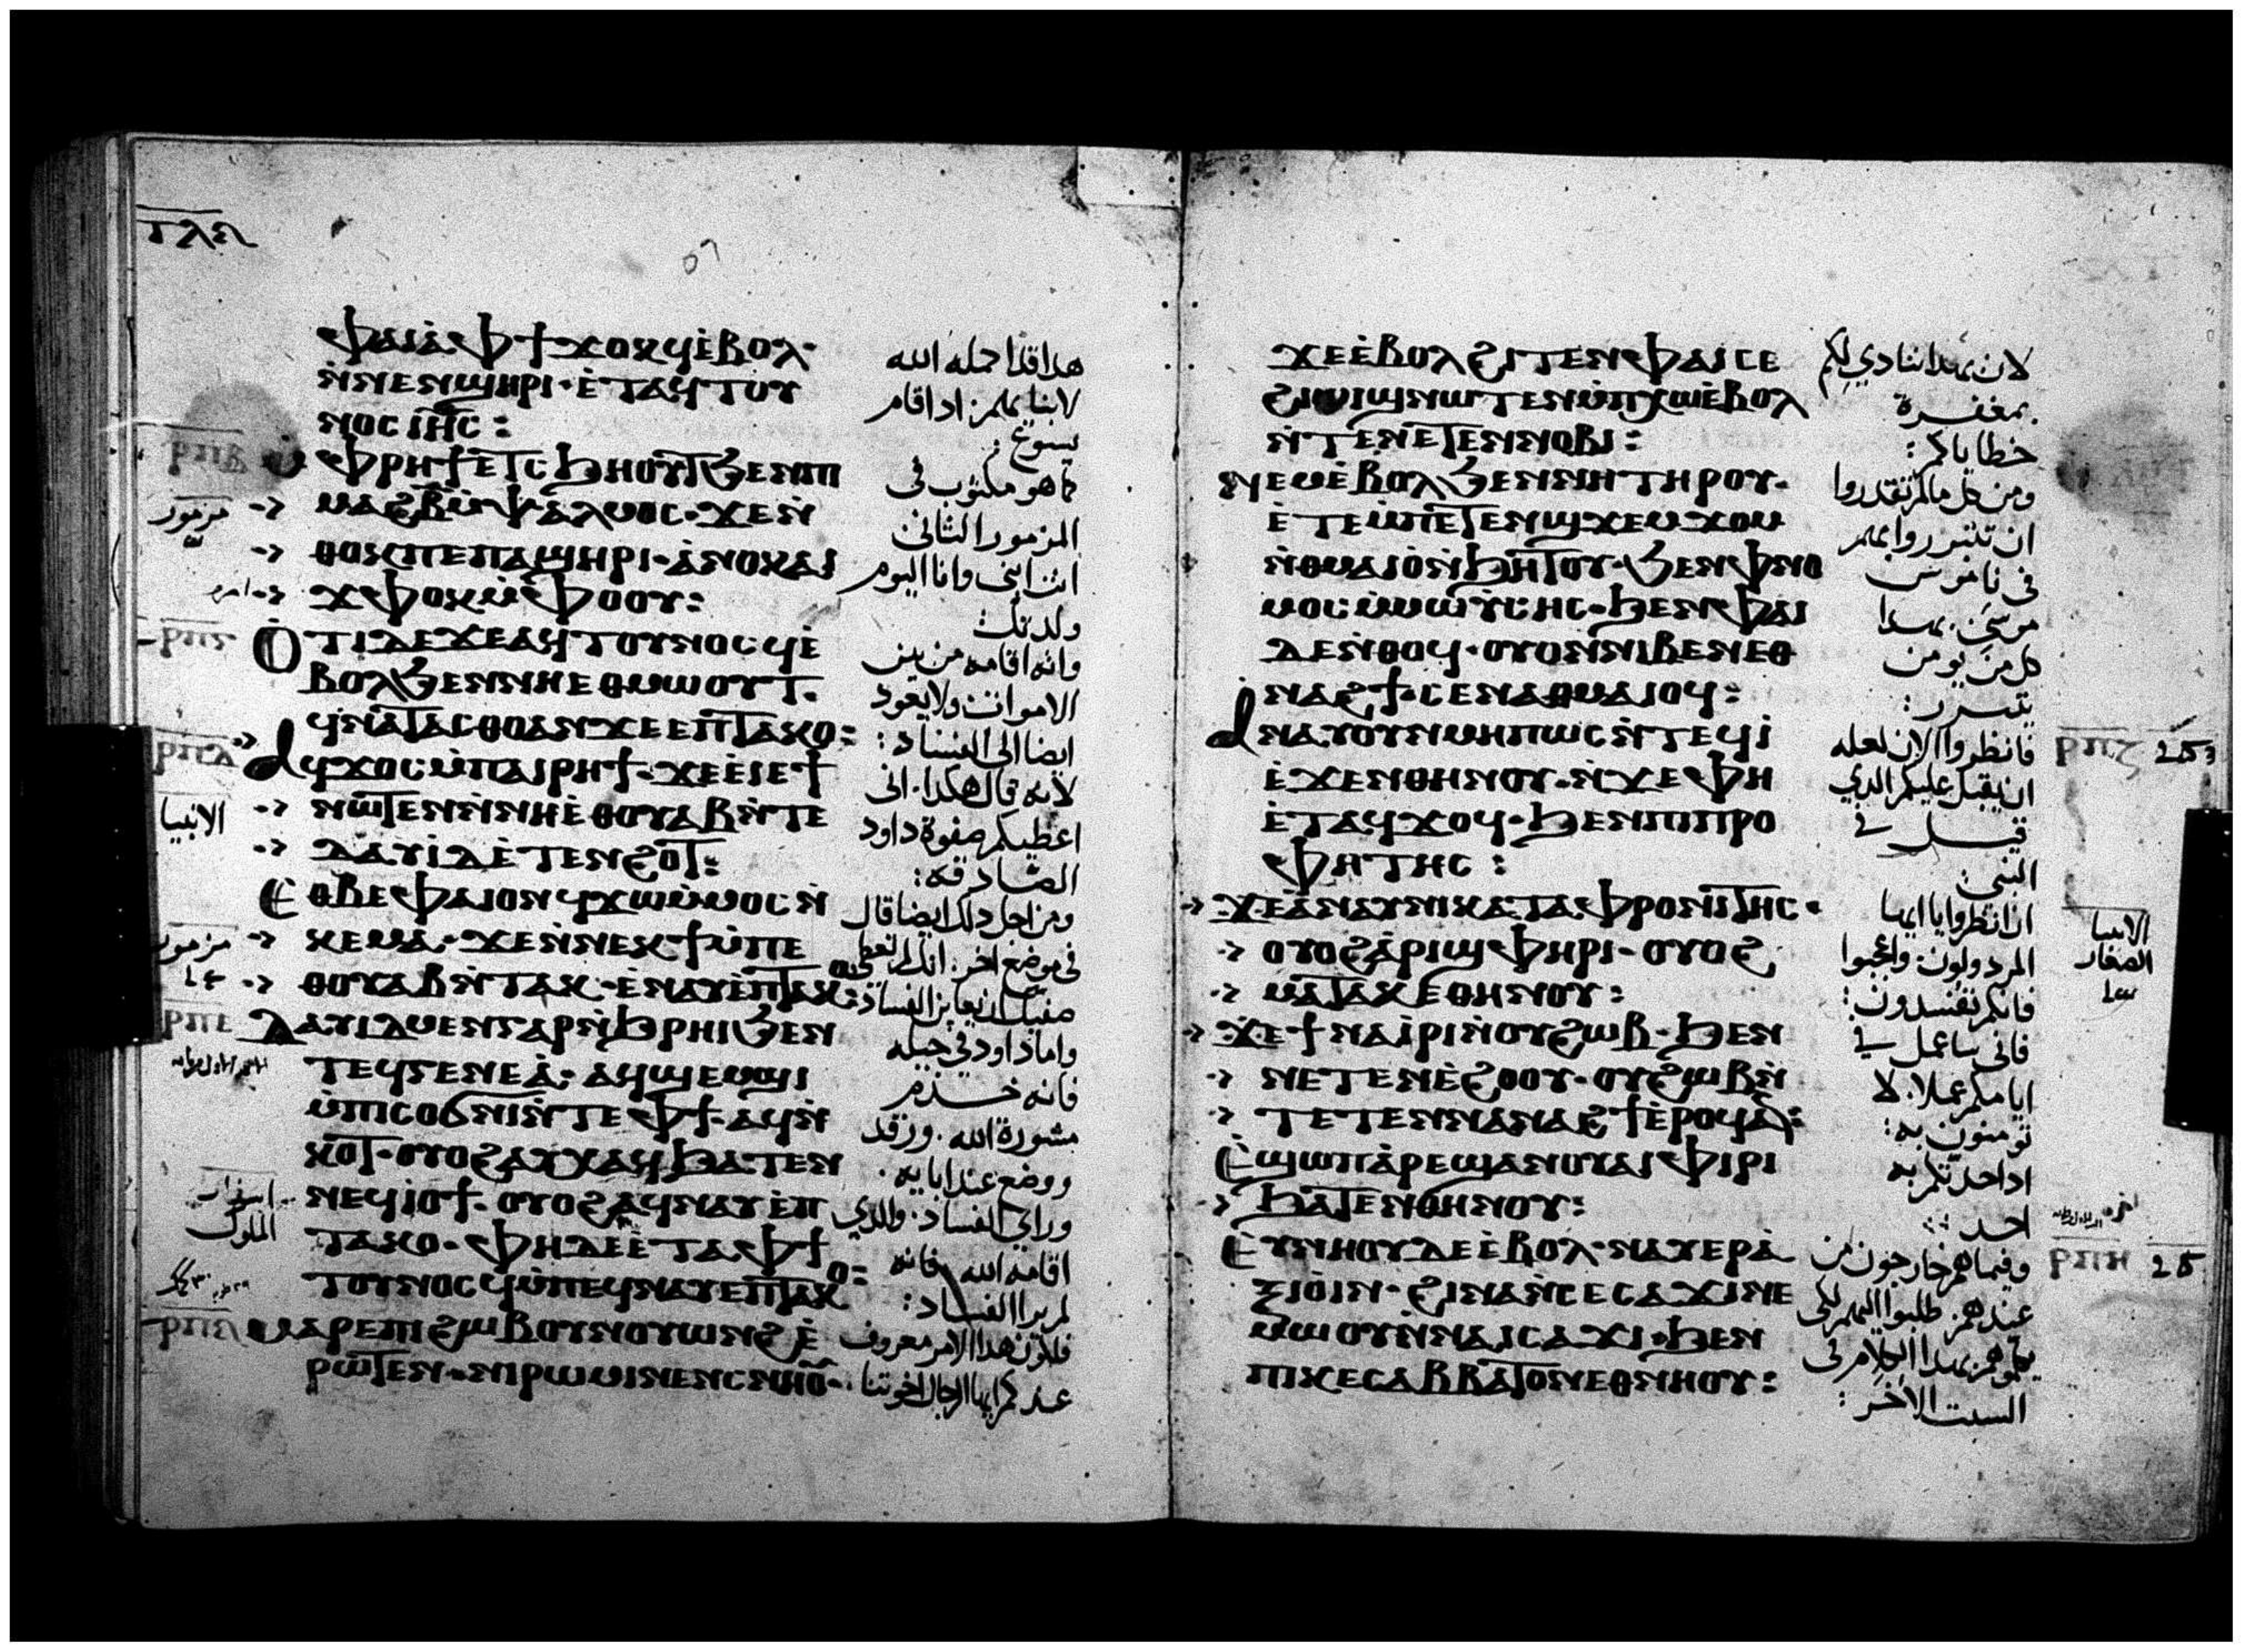 ⲧⲗⲋ
ⲫⲁⲓ ⲁ̀ⲫϯ ϫⲟⲕϥ ⲉ̀ⲃⲟⲗ·
ⲛ̀ⲛⲉⲛϣⲏⲣⲓ· ⲉ̀ⲧⲁϥⲧⲟⲩ
ⲛⲟⲥ ⲓⲏ̅ⲥ̅:
ⲙ̀ⲫⲣⲏϯ ⲉ̀ⲧⲥϧⲏⲟⲩⲧ ϧⲉⲛⲡⲓ
ⲙⲁϩⲃ̅ ⲙ̀ⲯⲁⲗⲙⲟⲥ· ϫⲉⲛ̀
ⲑⲟⲕ ⲡⲉ ⲡⲁϣⲏⲣⲓ· ⲁ̀ⲛⲟⲕ ⲁⲓ
ϫⲫⲟⲕ ⲙ̀ⲫⲟⲟⲩ:
ⲟ̀ⲧⲓ ⲇⲉ ϫⲉ ⲁϥⲧⲟⲩⲛⲟⲥϥ ⲉ̀
ⲃⲟⲗϧⲉⲛⲛⲏⲉⲑⲙⲱⲟⲩⲧ·
ϥⲛⲁⲧⲁⲥⲑⲟ ⲁⲛ ϫⲉ ⲉⲡⲧⲁⲕⲟ:
ⲁϥϫⲟⲥ ⲙ̀ⲡⲁⲓⲣⲏϯ· ϫⲉ ⲉ̀ⲓⲉϯ
ⲛⲱⲧⲉⲛ ⲛ̀ⲛⲏⲉ̀ⲑⲟⲩⲁⲃ ⲛ̀ⲧⲉ
ⲇⲁⲩⲓⲇ ⲉ̀ⲧⲉⲛϩⲟⲧ:
ⲉⲑⲃⲉⲫⲁⲓ ⲟⲛ ϥϫⲱ ⲙ̀ⲙⲟⲥ ⲛ̀
ⲕⲉⲙⲁ· ϫⲉ ⲛ̀ⲛⲉⲕϯ ⲙ̀ⲡⲉ
ⲑⲟⲩⲁⲃ ⲛ̀ⲧⲁⲕ· ⲉ̀ⲛⲁⲩ ⲉ̀ⲡⲧⲁⲕⲟ:
ⲇⲁⲩⲓⲇ ⲙⲉⲛ ⲅⲁⲣ ⲛ̀ϧⲣⲏⲓ ϧⲉⲛ
ⲧⲉϥⲅⲉⲛⲉⲁ̀· ⲁϥϣⲉⲙϣⲓ
ⲙ̀ⲡⲥⲟϭⲛⲓ ⲛ̀ⲧⲉ ⲫϯ· ⲁϥⲛ̀
ⲕⲟⲧ· ⲟⲩⲟϩ ⲁⲩⲭⲁϥ ϧⲁⲧⲉⲛ
ⲛⲉϥⲓⲟϯ· ⲟⲩⲟϩ ⲁϥⲛⲁⲩ ⲉ̀ⲡ
ⲧⲁⲕⲟ· ⲫⲏ ⲇⲉ ⲉ̀ⲧⲁ ⲫϯ
ⲧⲟⲩⲛⲟⲥϥ ⲙ̀ⲡⲉϥⲛⲁⲩ ⲉⲡⲧⲁⲕⲟ:
ⲙⲁⲣⲉ ⲡⲓϩⲱⲃ ⲟⲩⲛ ⲟⲩⲱⲛϩ ⲉ̀
ⲣⲱⲧⲉⲛ· ⲛⲓⲣⲱⲙⲓ ⲛⲉⲛⲥⲛⲏⲟⲩ·
هدا قد اكمله الله
لابنايهم اد اقام
يسوع
كما هو مكتوب في
المزمور الثاني
انت ابني وانا اليوم
ولدتك
وانه اقامه من بين
الاموات ولا يعود
ايضا الى الفساد:
لانه قال هكدا. اني
اعطيكم صفوة داود
الصادقة:
ومن اجل دلك ايضا قال
في موضع اخر. انك لم تعطي
صفيك ان يعاين الفساد:
واما داود في جيله
فانه خدم
مشورة الله. ورقد
ووضع عند ابايه.
وراي الفساد. والدي
اقامه الله فانه
لم يرا الفساد:
فليكون هدا الامر معروف
عندكم ايها الرجال اخوتنا
ⲣⲡⲃ
مزمور
ⲣⲡⲅ
ⲣⲡⲇ
الانبيا
مزمور
ⲣⲡⲉ
اسفار
الملوك
ⲣⲡⲋ
ϫⲉ ⲉ̀ⲃⲟⲗϩⲓⲧⲉⲛ ⲫⲁⲓ ⲥⲉ
ϩⲓⲱⲓϣ ⲛⲱⲧⲉⲛ ⲙ̀ⲡⲭⲱ ⲉ̀ⲃⲟⲗ
ⲛ̀ⲧⲉ ⲛⲉⲧⲉⲛⲛⲟⲃⲓ:
ⲛⲉⲙ ⲉ̀ⲃⲟⲗϧⲉⲛ ⲛⲏ ⲧⲏⲣⲟⲩ·
ⲉ̀ⲧⲉ ⲙ̀ⲡⲉⲧⲉⲛϣϫⲉⲙϫⲟⲙ
ⲛ̀ⲑⲙⲁⲓⲟ ⲛ̀ϧⲏⲧⲟⲩ· ϧⲉⲛ ⲫⲛⲟ
ⲙⲟⲥ ⲙ̀ⲙⲱⲩⲥⲏⲥ· ϧⲉⲛ ⲫⲁⲓ
ⲇⲉ ⲛ̀ⲑⲟϥ· ⲟⲩⲟⲛ ⲛⲓⲃⲉⲛ ⲉⲑ
ⲛⲁϩϯ· ⲥⲉⲛⲁⲑⲙⲁⲓⲟϥ:
ⲁⲛⲁⲩ ⲟⲩⲛ ⲙⲏⲡⲱⲥ ⲛ̀ⲧⲉϥⲓ̀
ⲉ̀ϫⲉⲛ ⲑⲏⲛⲟⲩ· ⲛ̀ϫⲉ ⲫⲏ
ⲉ̀ⲧⲁϥϫⲟϥ· ϧⲉⲛ ⲡⲓⲡⲣⲟ
ⲫⲏⲧⲏⲥ:
ϫⲉ ⲁ̀ⲛⲁⲩ ⲛⲓⲕⲁⲧⲁⲫⲣⲟⲛⲓⲧⲏⲥ·
ⲟⲩⲟϩ ⲁ̀ⲣⲓϣⲫⲏⲣⲓ· ⲟⲩⲟϩ
ⲙⲁⲧⲁⲕⲉ ⲑⲏⲛⲟⲩ:
ϫⲉ ϯⲛⲁⲓ̀ⲣⲓ ⲛ̀ⲟⲩϩⲱⲃ· ϧⲉⲛ
ⲛⲉⲧⲉⲛⲉ̀ϩⲟⲟⲩ· ⲟⲩϩⲱⲃ ⲛ̀
ⲧⲉⲧⲉⲛⲛⲁⲛⲁϩϯ ⲉ̀ⲣⲟϥ ⲁⲛ:
ⲉ̀ϣⲱⲡ ⲁ̀ⲣⲉϣⲁⲛ ⲟⲩⲁⲓ ⲫⲓⲣⲓ
ϧⲁⲧⲉⲛ ⲑⲏⲛⲟⲩ:
ⲉⲩⲛⲏⲟⲩ ⲇⲉ ⲉ̀ⲃⲟⲗ· ⲛⲁⲩⲉⲣⲁ̀
ⲝⲓⲟⲓⲛ· ϩⲓⲛⲁ ⲛ̀ⲥⲉⲥⲁϫⲓ ⲛⲉ
ⲙⲱⲟⲩ ⲛ̀ⲛⲁⲓⲥⲁϫⲓ· ϧⲉⲛ
ⲡⲓⲕⲉⲥⲁⲃⲃⲁⲧⲟⲛ ⲉⲑⲛⲏⲟⲩ:
لان بهدا ننادي لكم
بمغفرة
خطاياكم:
ومن كل ما لم تقدروا
ان تتبرروا بهم
في ناموس
موسى. بهدا
كل من يومن
يتبرر:
فانظروا الان لعله
ان يقبل عليكم الدي
قيل في
النبي:
ان انظروا يا ايها
المردولون. واعجبوا
فانكم تفسدون:
فاني ساعمل في
ايامكم عملا. لا
تومنون به:
ادا حدتكم به
احد:
وفيما هم خارجون من
عندهم. طلبوا اليهم لكي
يكلموهم بهدا الكلام في
السبت الاخر:
ⲣⲡⲍ
الانبيا
الصغار
ⲣⲡⲏ